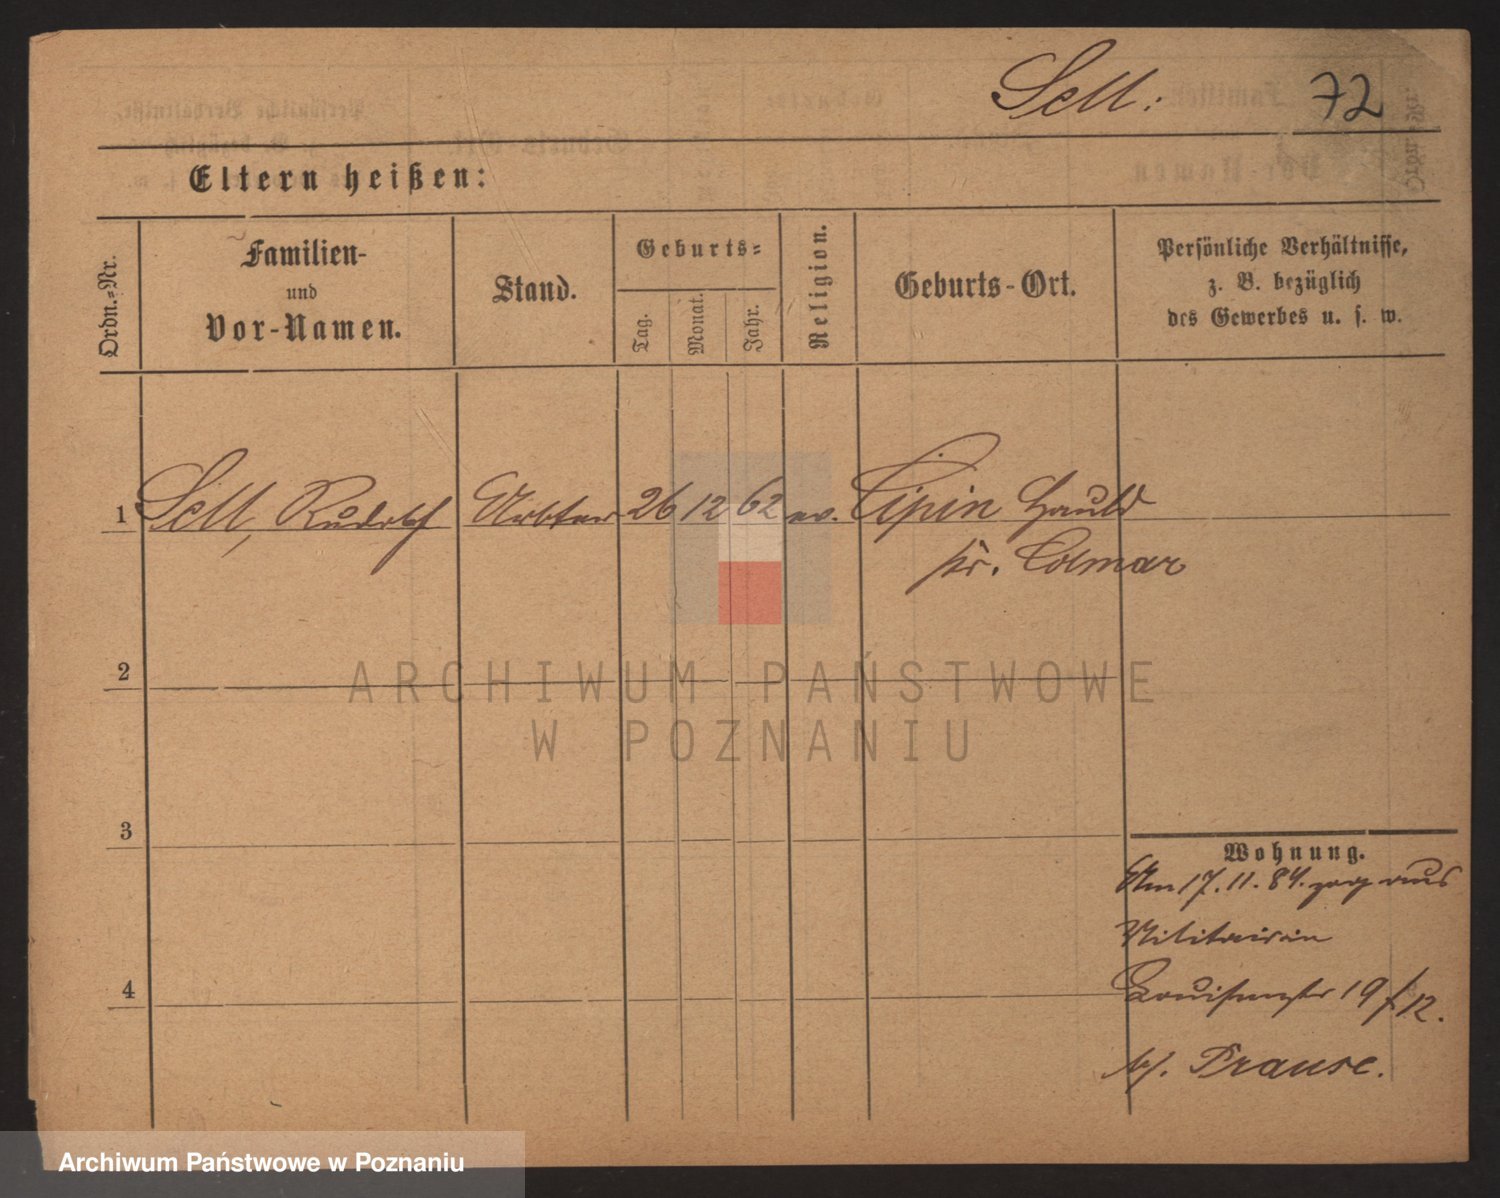 Sell: 72
Eltern heißen:
Ordn.=Nr.
Familien-
und
Vor-Namen.
Stand.
Geburts=
Tag.
Monat.
Jahr.
Religion.
Geburts-Ort.
Persönliche Verhältnisse,
z. B. bezüglich
des Gewerbes u. s. w.
1 Sell, Rudolf 26 12 62 ev. Lipin Hauld
Kr. Colmar
2
3
4
Wohnung.
Am 17.11.84. zog aus
Louisenstr 19
b/. Prause.
ARCHIWUM PAŃSTWOWE
W POZNANIU
Archiwum Państwowe w Poznaniu